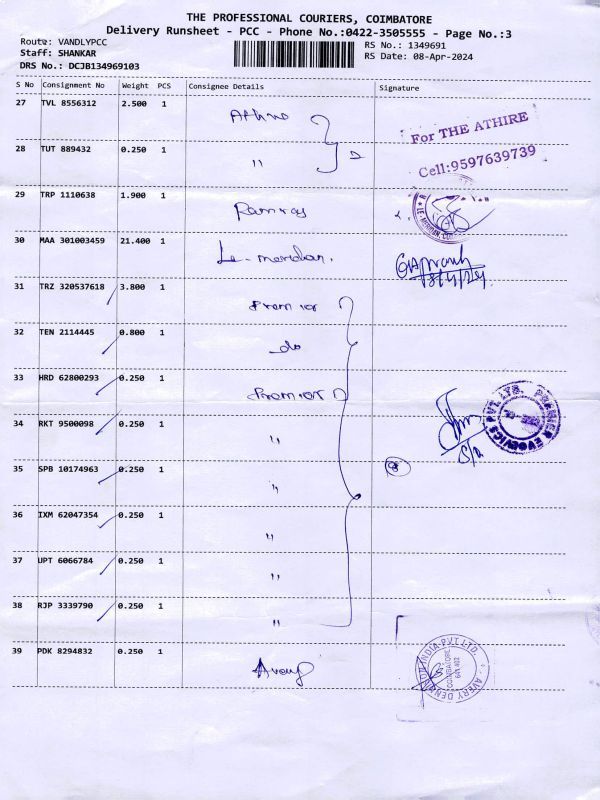 THE PROFESSIONAL COURIERS, COIMBATORE
Delivery Runsheet - PCC - Phone No.:0422-3505555 - Page No.:3
Route: VANDLYPCC
RS No.: 1349691
Staff: SHANKAR
RS Date: 08-Apr-2024
DRS No.: DCJB134969103
S No Consignment No Weight PCS Consignee Details Signature
27 TVL 8556312 2.500 1
For THE ATHIRE
Cell:9597639739
28 TUT 889432 0.250 1 "
29 TRP 1110638 1.900 1 Ramraj
30 MAA 301003459 21.400 1 Le-meridian.
31 TRZ 320537618 3.800 1 Premier
32 TEN 2114445 0.800 1 do
33 HRD 62800293 0.250 1 Premier
34 RKT 9500098 0.250 1 "
35 SPB 10174963 0.250 1 " 8
36 IXM 62047354 0.250 1 "
37 UPT 6066784 0.250 1 "
38 RJP 3339790 0.250 1 "
39 PDK 8294832 0.250 1 Avery
PREMIER EVOMICS PVT. LTD.
AVERY DENNISON INDIA PVT. LTD.
COIMBATORE